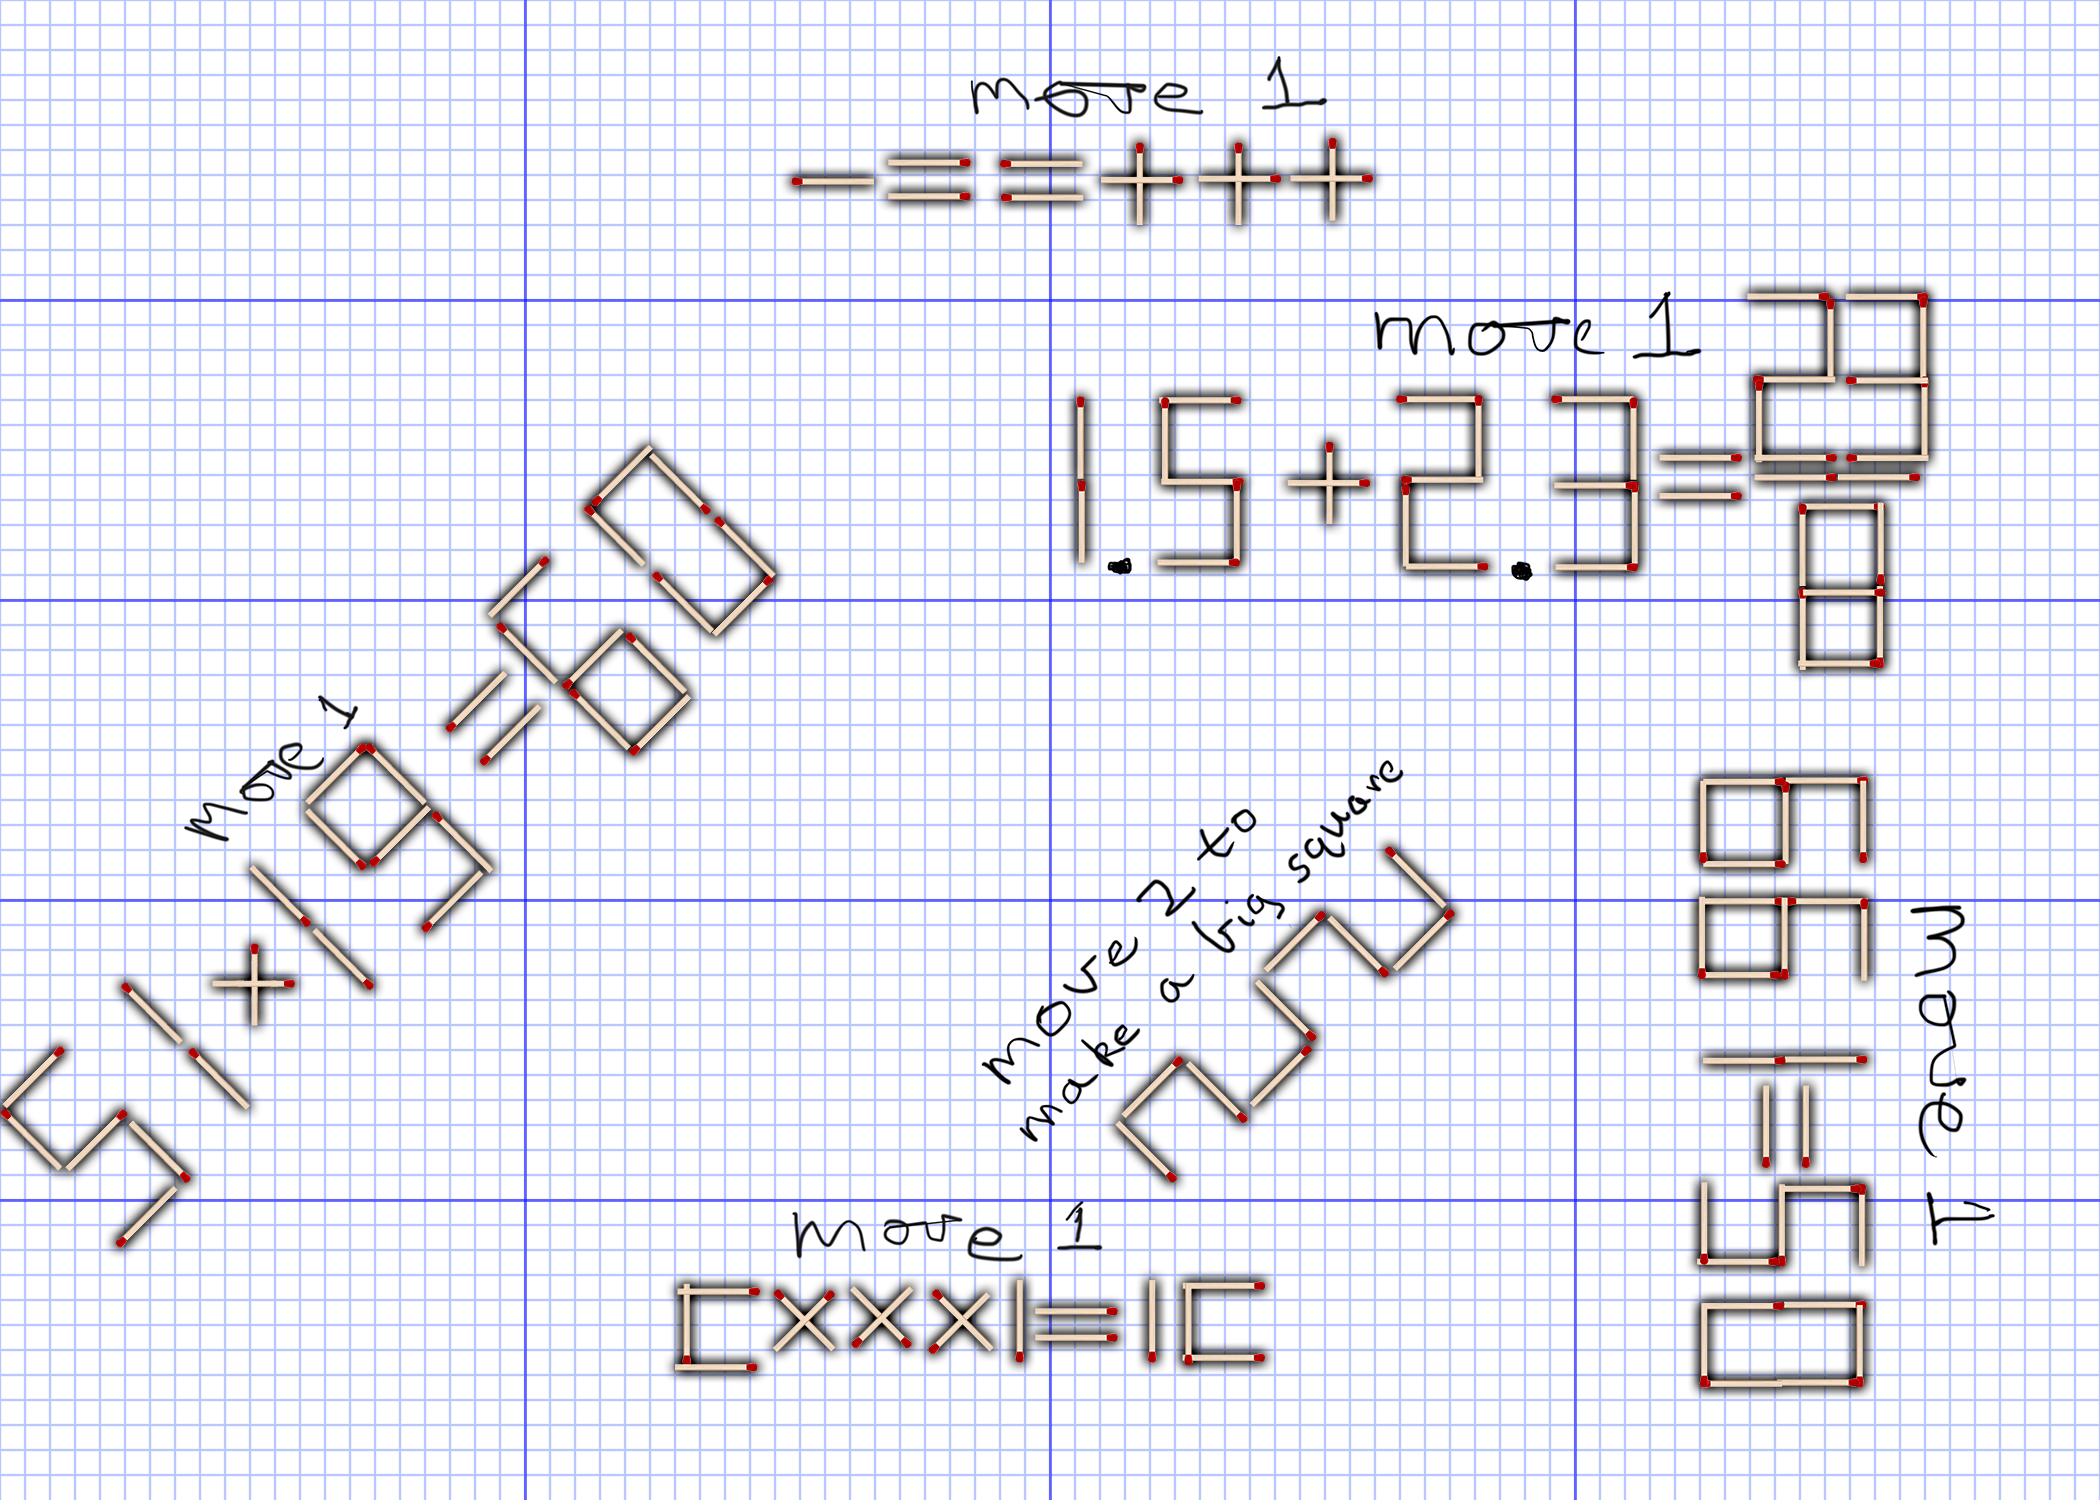 move 1
-==+++
move 1
1.5+2.3=23/8
Move 1
51+19=60
move 2 to
make a big square
Move 1
661=50
move 1
CXXXI=IC